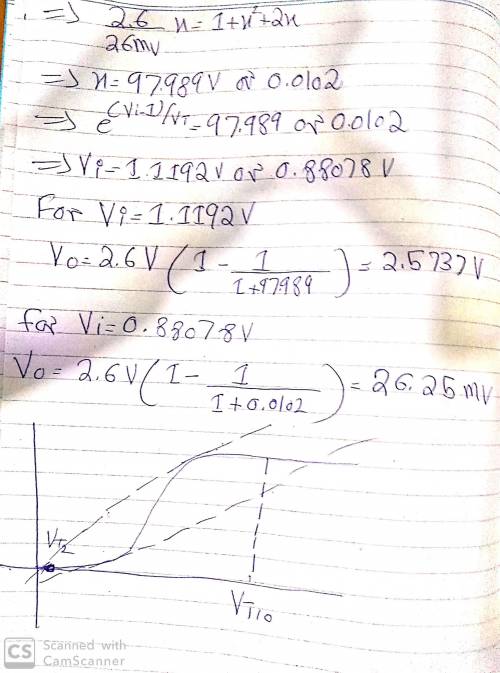 . => 2.6/26mV x = 1+x²+2x
=> x = 97.989V or 0.0102
=> e^(Vi-1)/VT = 97.989 or 0.0102
=> Vi = 1.1192V or 0.88078V
For Vi = 1.1192V
Vo = 2.6V (1 - 1/(1+97.989)) = 2.5737V
for Vi = 0.88078V
Vo = 2.6V (1 - 1/(1+0.0102)) = 26.25mV
VT2
VT10
CS Scanned with
CamScanner